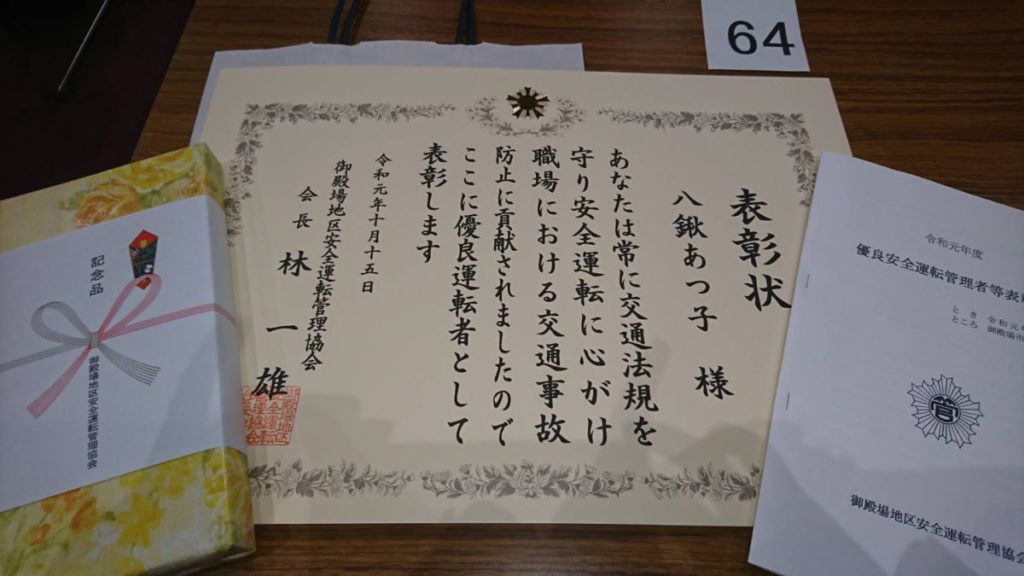 64
表彰状
八鍬あつ子 様
あなたは常に交通法規を
守り安全運転に心がけ
職場における交通事故
防止に貢献されましたので
ここに優良運転者として
表彰します
令和元年十月十五日
御殿場地区安全運転管理協会
会長 林一雄
記念品
御殿場地区安全運転管理協会
令和元年度
優良安全運転管理者等表
とき 令和元
ところ 御殿場市
管
御殿場地区安全運転管理協会